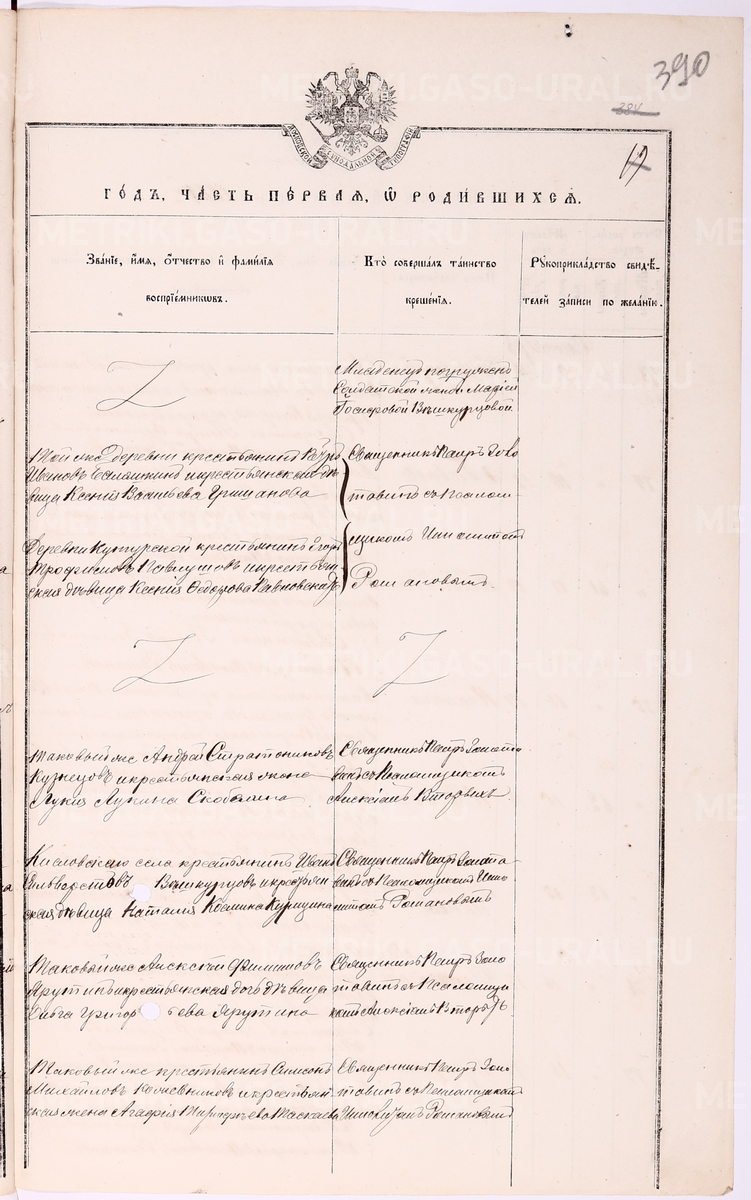 390
384
17
МОСКОВСКОЙ СѴНОДАЛЬНОЙ ТИПОГРАФІИ
ГО́ДЪ, ЧА́СТЬ ПЕ́РВАѦ, Ѡ҆ РОДИ́ВШИХСѦ.
Зва́нїе, и҆́мѧ, ѻ҆́тчество и҆ фами́лїѧ
воспрїе́мникѡвъ.
Кто̀ соверша́лъ та́инство
креще́нїѧ.
Рꙋкоприкла́дство свидѣ́-
телей за́писи по жела́нїю.
Младенецъ погруженъ
Солдатской женой Маріей
Іосифовой Вшкурцовой
Той же деревни крестьянинъ Петръ
Ивановъ и крестьянская дѣ
вица Ксенія Васильева Гришанова
Священникъ Петръ Золо
тавинъ съ Псалом
щикомъ Ипполитомъ
Романовымъ.
Деревни крестьянинъ Егоръ
Трофимовъ Павлушовъ и крестьян
ская дѣвица Ксенія Ѳедорова
Таковый же Андрей Стратониковъ
Кузнецовъ и крестьянская жена
Лукія Лукина Скобелина
Священникъ Петръ Золота
винъ съ Псаломщикомъ
Алексіемъ Вторыхъ.
Кисловскаго села крестьянинъ Иванъ
Сильверстовъ Вшкурцовъ и крестьян
ская дѣвица Наталія Космина Курицина
Священникъ Петръ Золота
винъ съ Псаломщикомъ Иппо
литомъ Романовымъ
Таковый же Алексѣй Филиповъ
Ярутинъ и крестьянская дочь дѣвица
Ольга Григорьева Ярутина
Священникъ Петръ Золо
тавинъ съ Псаломщи
комъ Алексіемъ Вторыхъ
Таковый же крестьянинъ Симеонъ
Михайловъ Кожевниковъ и крестьян
ская жена Агафія Таскаева
Священникъ Петръ Золо
тавинъ съ Псаломщикомъ
Ипполитомъ Романовымъ
METRIKI.GASO-URAL.RU